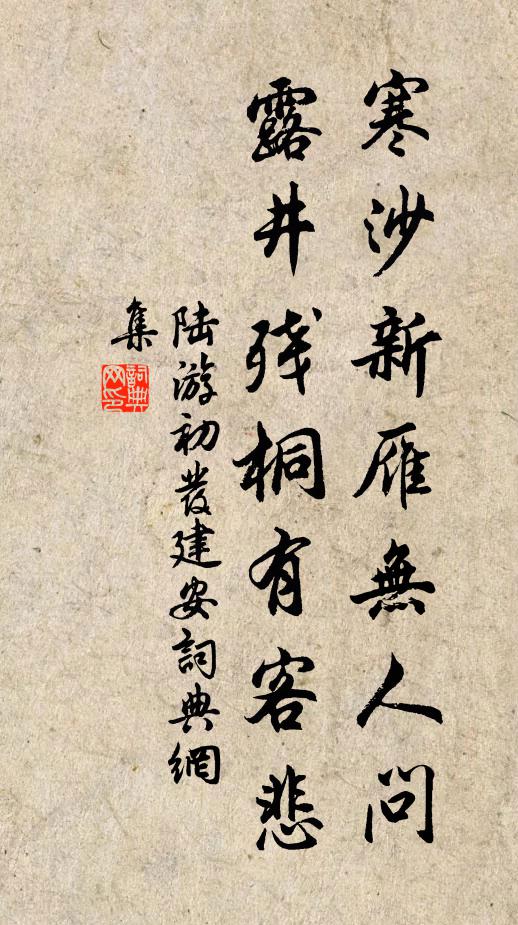 寒沙新雁無人問
露井残桐有客悲
陆游初發建安詞典網
集
詞典網印